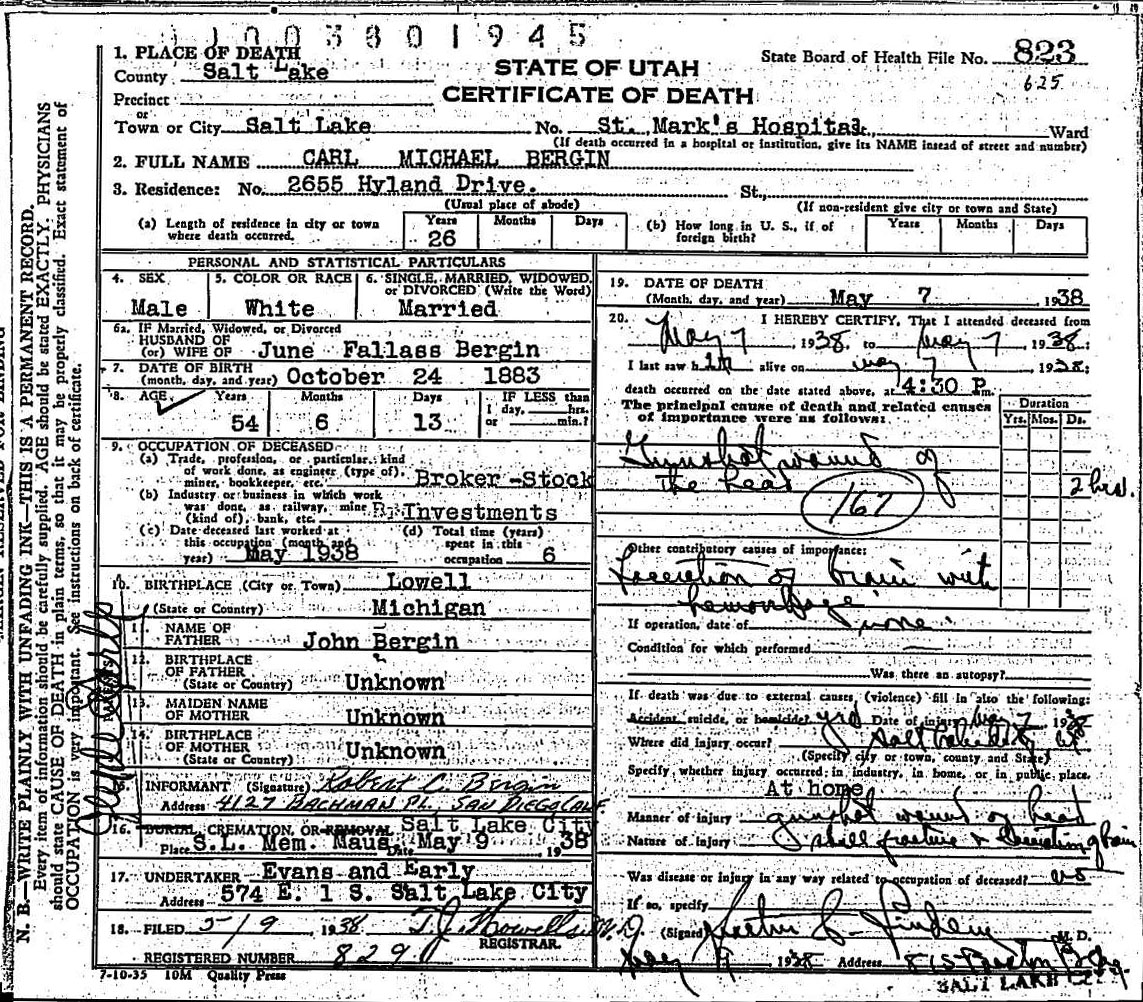 1003801945
1. PLACE OF DEATH
County Salt Lake
STATE OF UTAH
CERTIFICATE OF DEATH
State Board of Health File No. 823
625
Precinct
or
Town or City Salt Lake No. St. Mark's Hospital St., Ward
(If death occurred in a hospital or institution, give its NAME instead of street and number)
2. FULL NAME CARL MICHAEL BERGIN
3. Residence: No. 2655 Hyland Drive. St.,
(Usual place of abode) (If non-resident give city or town and State)
(a) Length of residence in city or town where death occurred. Years 26 Months Days
(b) How long in U. S., if of foreign birth? Years Months Days
PERSONAL AND STATISTICAL PARTICULARS
4. SEX Male
5. COLOR OR RACE White
6. SINGLE, MARRIED, WIDOWED, or DIVORCED (Write the Word) Married
6a. IF Married, Widowed, or Divorced
HUSBAND OF
(or) WIFE OF June Fallass Bergin
7. DATE OF BIRTH
(month, day, and year) October 24 1883
8. AGE Years 54 Months 6 Days 13 IF LESS than 1 day, hrs. or min.?
9. OCCUPATION OF DECEASED
(a) Trade, profession, or particular kind
of work done, as engineer (type of),
miner, bookkeeper, etc. Broker-Stock
(b) Industry or business in which work
was done, as railway, mine
(kind of), bank, etc. Investments
(c) Date deceased last worked at
this occupation (month and
year) May 1938
(d) Total time (years)
spent in this
occupation 6
10. BIRTHPLACE (City or Town) Lowell
(State or Country) Michigan
11. NAME OF
FATHER John Bergin
12. BIRTHPLACE
OF FATHER
(State or Country) Unknown
13. MAIDEN NAME
OF MOTHER Unknown
14. BIRTHPLACE
OF MOTHER
(State or Country) Unknown
15. INFORMANT (Signature) Robert C. Bergin
Address 4127 BACHMAN PL. SAN DIEGO CALF
16. BURIAL, CREMATION, OR REMOVAL Salt Lake City
Place S.L. Mem. Maus. Date May 9 1938
17. UNDERTAKER Evans and Early
Address 574 E. 1 S. Salt Lake City
18. FILED 5/9 1938 T.J. Howells M.D.
REGISTRAR.
REGISTERED NUMBER 829
7-10-35 10M Quality Press
19. DATE OF DEATH
(Month, day, and year) May 7 1938
20. I HEREBY CERTIFY, That I attended deceased from
May 7, 1938, to May 7, 1938;
I last saw him alive on May 7 1938;
death occurred on the date stated above, at 4:30 P.m.
The principal cause of death and related causes
of importance were as follows:
Duration
Yrs. Mos. Ds.
Gunshot wound of
the head
2 hrs.
167
Other contributory causes of importance:
Laceration of brain with
hemorrhage
If operation, date of none
Condition for which performed
Was there an autopsy?
If death was due to external causes (violence) fill in also the following:
Accident, suicide, or homicide? yes Date of injury May 7 1938
Where did injury occur? Salt Lake City
(Specify city or town, county and State)
Specify, whether injury occurred in industry, in home, or in public place.
At home
Manner of injury gunshot wound of head
Nature of injury skull fracture &
Was disease or injury in any way related to occupation of deceased? no
If so, specify
(Signed) M. D.
1938 Address
SALT LAKE CITY
N. B.—WRITE PLAINLY WITH UNFADING INK—THIS IS A PERMANENT RECORD.
Every item of information should be carefully supplied. AGE should be stated EXACTLY. PHYSICIANS
should state CAUSE OF DEATH in plain terms, so that it may be properly classified. Exact statement of
OCCUPATION is very important. See instructions on back of certificate.